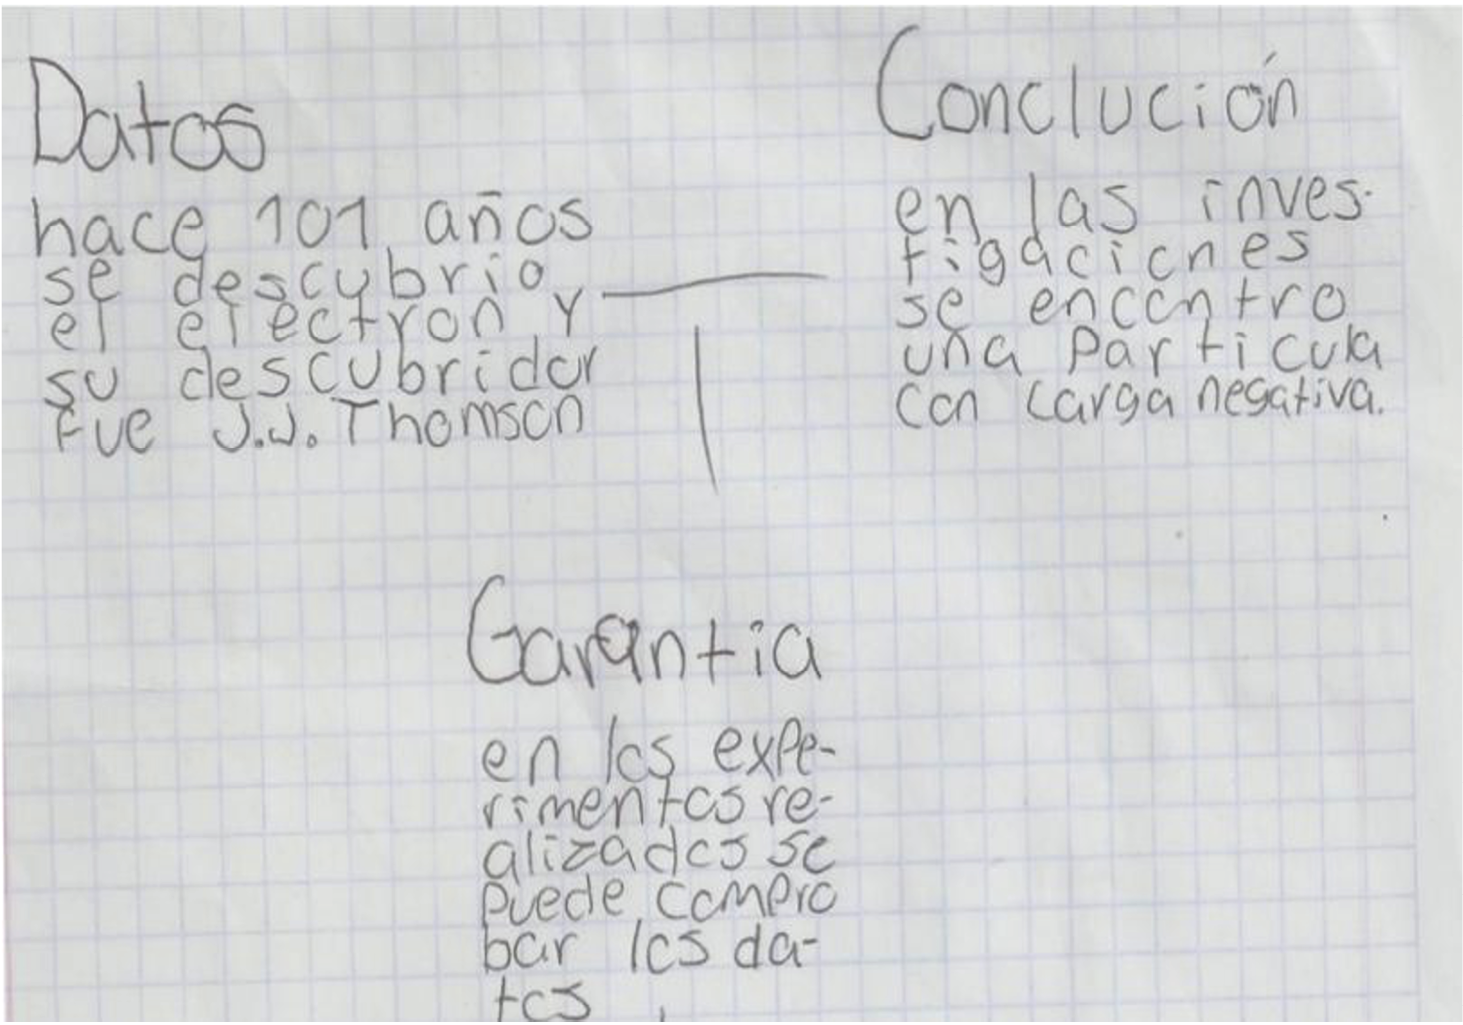 Datos
hace 101 años
se descubrio
el electron y
su descubridor
fue J.J. Thomson
Conclución
en las inves-
tigaciones
se encontro
una particula
con carga negativa.
Garantia
en los expe-
rimentos re-
alizados se
puede compro
bar los da-
tos